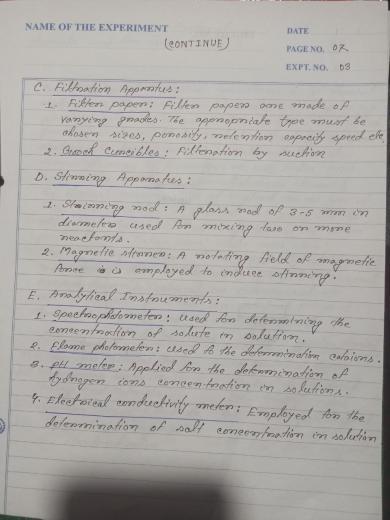 NAME OF THE EXPERIMENT
DATE
(CONTINUE)
PAGE NO. 02
EXPT. NO. 03
C. Filtration Apparatus:
1. Filter paper: Filter papers are made of
varying grades. The appropriate type must be
chosen sizes, porosity, retention capacity speed etc.
2. Gooch Cruncibles: Filteration by suction
D. Stirring Apparatus:
1. Stirring rod: A glass rod of 3-5 mm in
diameter used for mixing two or more
reactants.
2. Magnetic stirrer: A rotating field of magnetic
force is employed to induce stirring.
E. Analytical Instruments:
1. Spectrophotometer: Used for determining the
concentration of solute in solution.
2. Flame photometer: Used to the determination cations.
3. pH meter: Applied for the determination of
hydrogen ions concentration in solutions.
4. Electrical conductivity meter: Employed for the
determination of salt concentration in solution